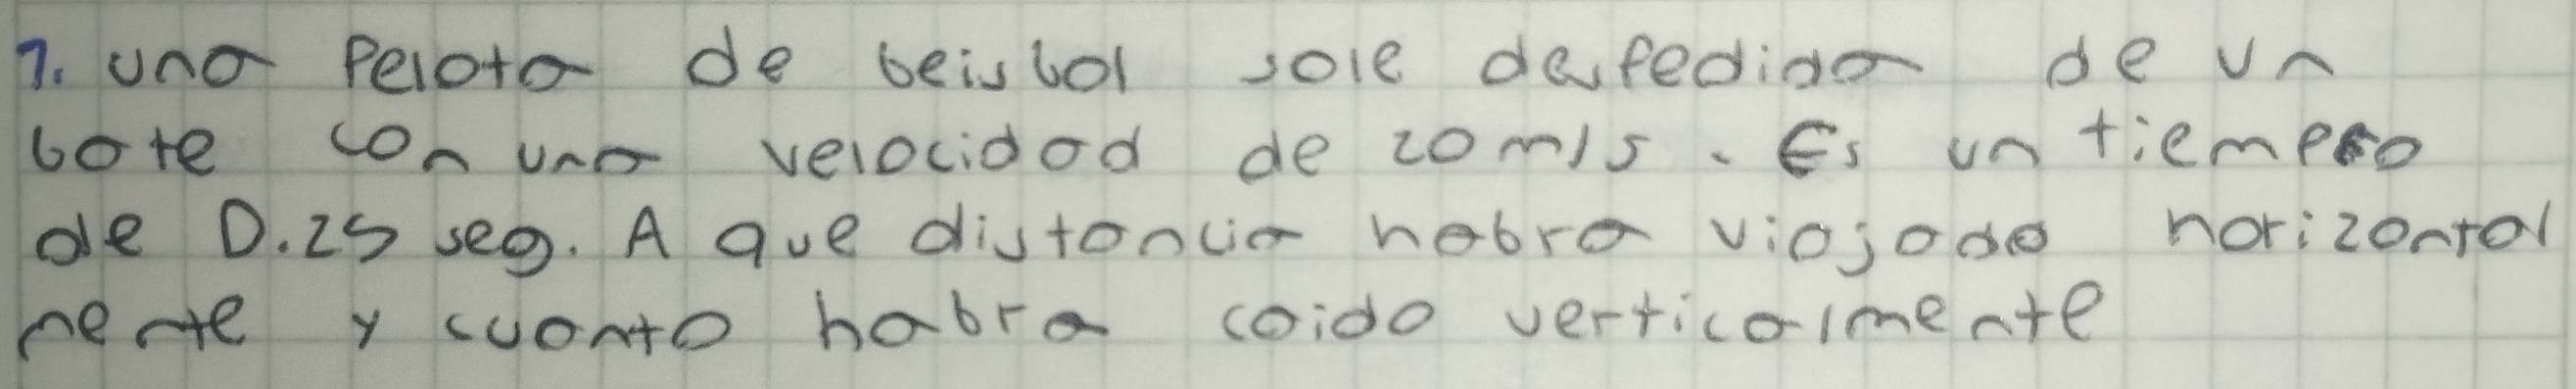 1. una Pelota de beisbol sale despedida de un
bate con una velocidad de 20 m/s. Es un tiempo
de 0.25 seg. A que distancia habra viajado horizontal
mente y cuanto habra caido verticalmente